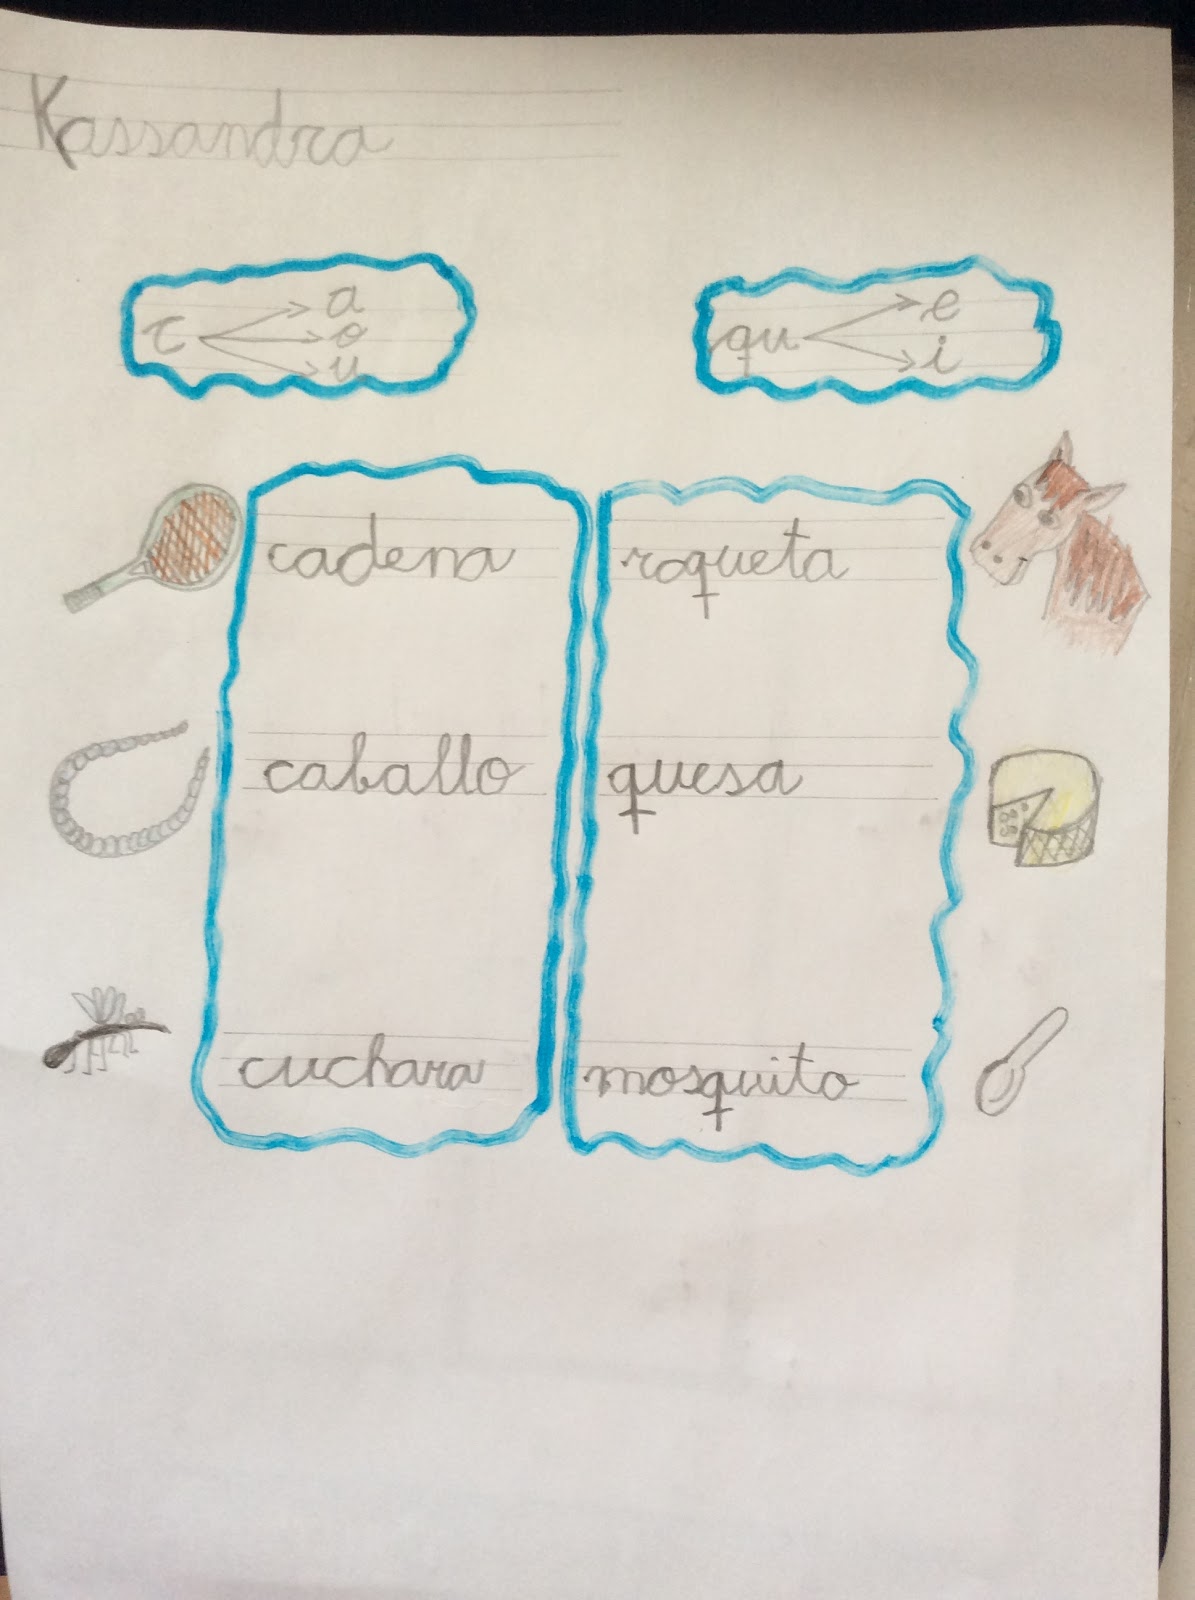 Kassandra
c a o u
qu e i
cadena
caballo
cuchara
roqueta
quesa
mosquito